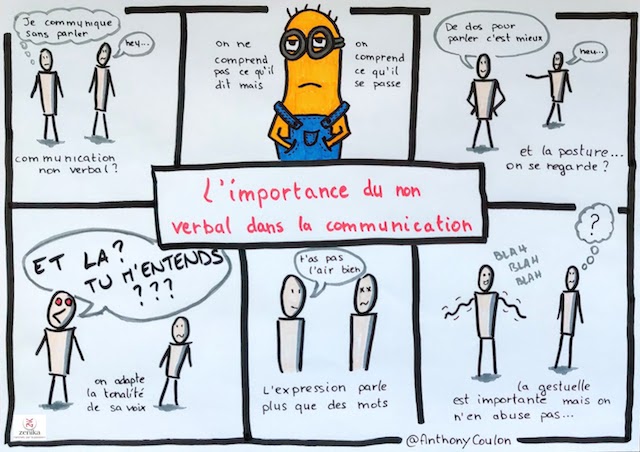 Je communique
sans parler
hey...
communication
non verbal?
on ne
comprend
pas ce qu'il
dit mais
on
comprend
ce qu'il
se passe
De dos pour
parler c'est mieux
heu...
et la posture...
on se regarde ?
L'importance du non
verbal dans la communication
ET LA?
TU M'ENTENDS
???
on adapte
la tonalité
de sa voix
zenika
t'as pas
l'air bien
L'expression parle
plus que des mots
BLAH
BLAH
BLAH
?
la gestuelle
est importante mais on
n'en abuse pas...
@AnthonyCoulon